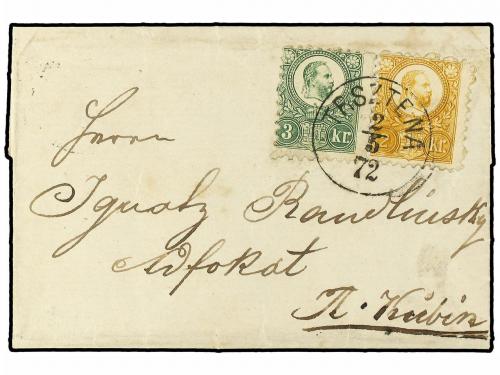 3 kr.
2 kr.
TRSZTENA
2/5
72
Herrn
Ignatz Randlinsky
Adfokat
A. Kubin